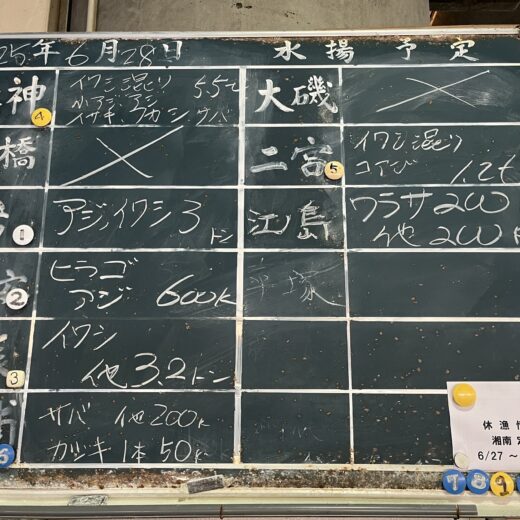 25年6月28日 水揚予定
神
イワシ混じり 5.5t
小アジ、アジ
イサキ、フカシ、サバ
4
大磯
×
橋
×
二宮
5
イワシ混じり
コアジ 1.2t
1
アジ、イワシ 3トン
江島
ワラサ 200
他 200k
2
ヒラゴ
アジ 600k
平塚
3
イワシ
他 3.2トン
6
サバ 他200k
カツキ 1本 50k
休漁
湘南
6/27 ～
7 8 9